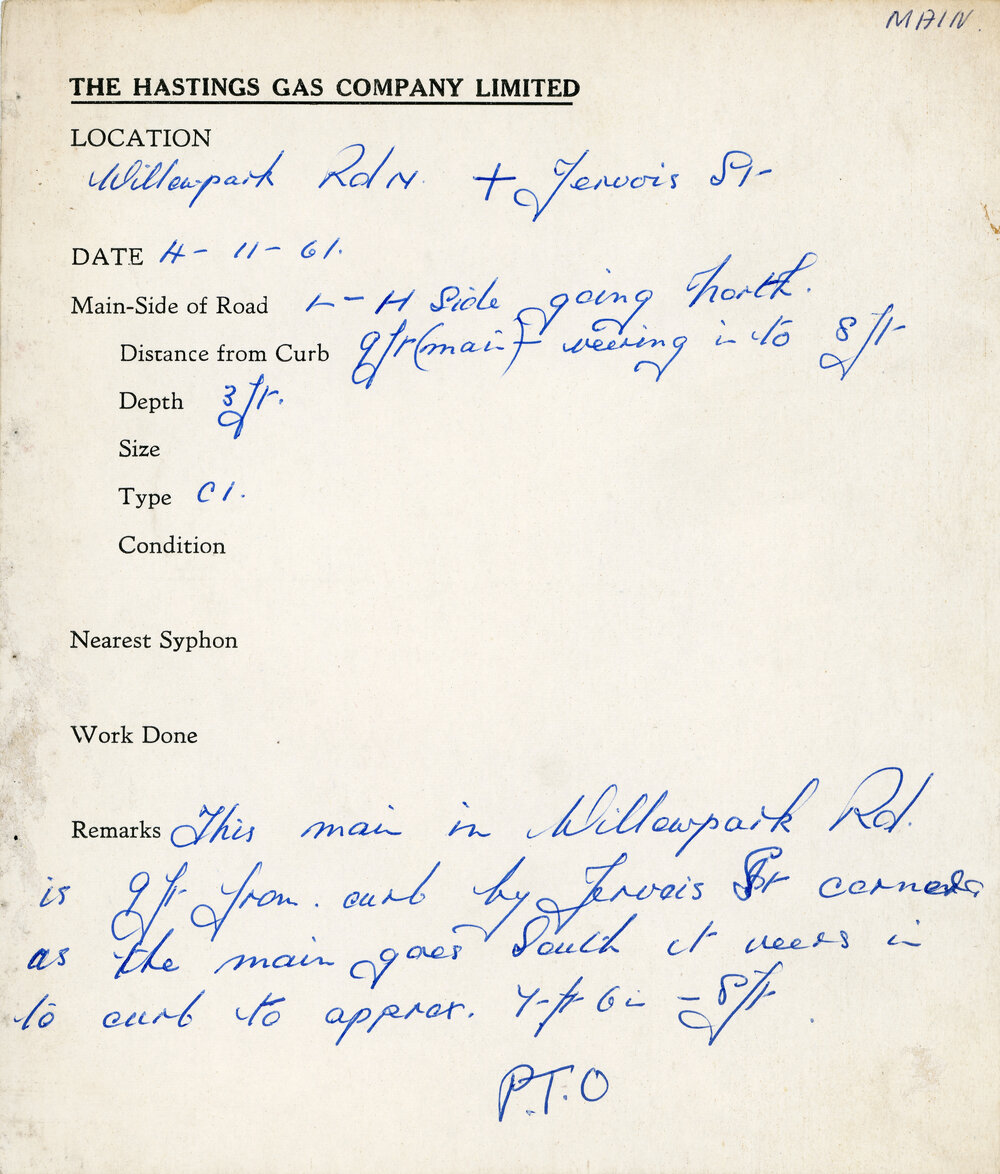 MAIN
THE HASTINGS GAS COMPANY LIMITED
LOCATION
Willowpark Rd N. + Jervois St
DATE 4-11-61.
Main-Side of Road L-H Side going North.
Distance from Curb 9ft (main) - veering in to 8ft
Depth 3ft.
Size
Type CI.
Condition
Nearest Syphon
Work Done
Remarks This main in Willowpark Rd.
is 9ft from. curb by Jervois St corner
as the main goes South it veers in
to curb to approx. 7-ft 6in - 8ft
P.T.O